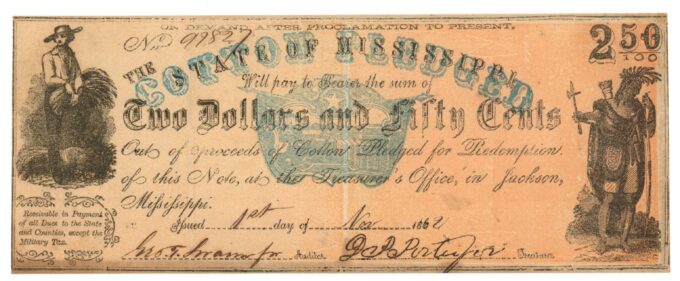 ON DEMAND AFTER PROCLAMATION TO PRESENT,
No. 99827
2 50/100
THE STATE OF MISSISSIPPI
COTTON PLEDGED
Will pay to Bearer the sum of
Two Dollars and Fifty Cents
Out of proceeds of Cotton Pledged for Redemption
of this Note, at the Treasurer's Office, in Jackson,
Mississippi.
Issued 1st day of Nov 1862
Receivable in Payment
of all Dues to the State
and Counties, except the
Military Tax.
Auditor.
Treasurer.